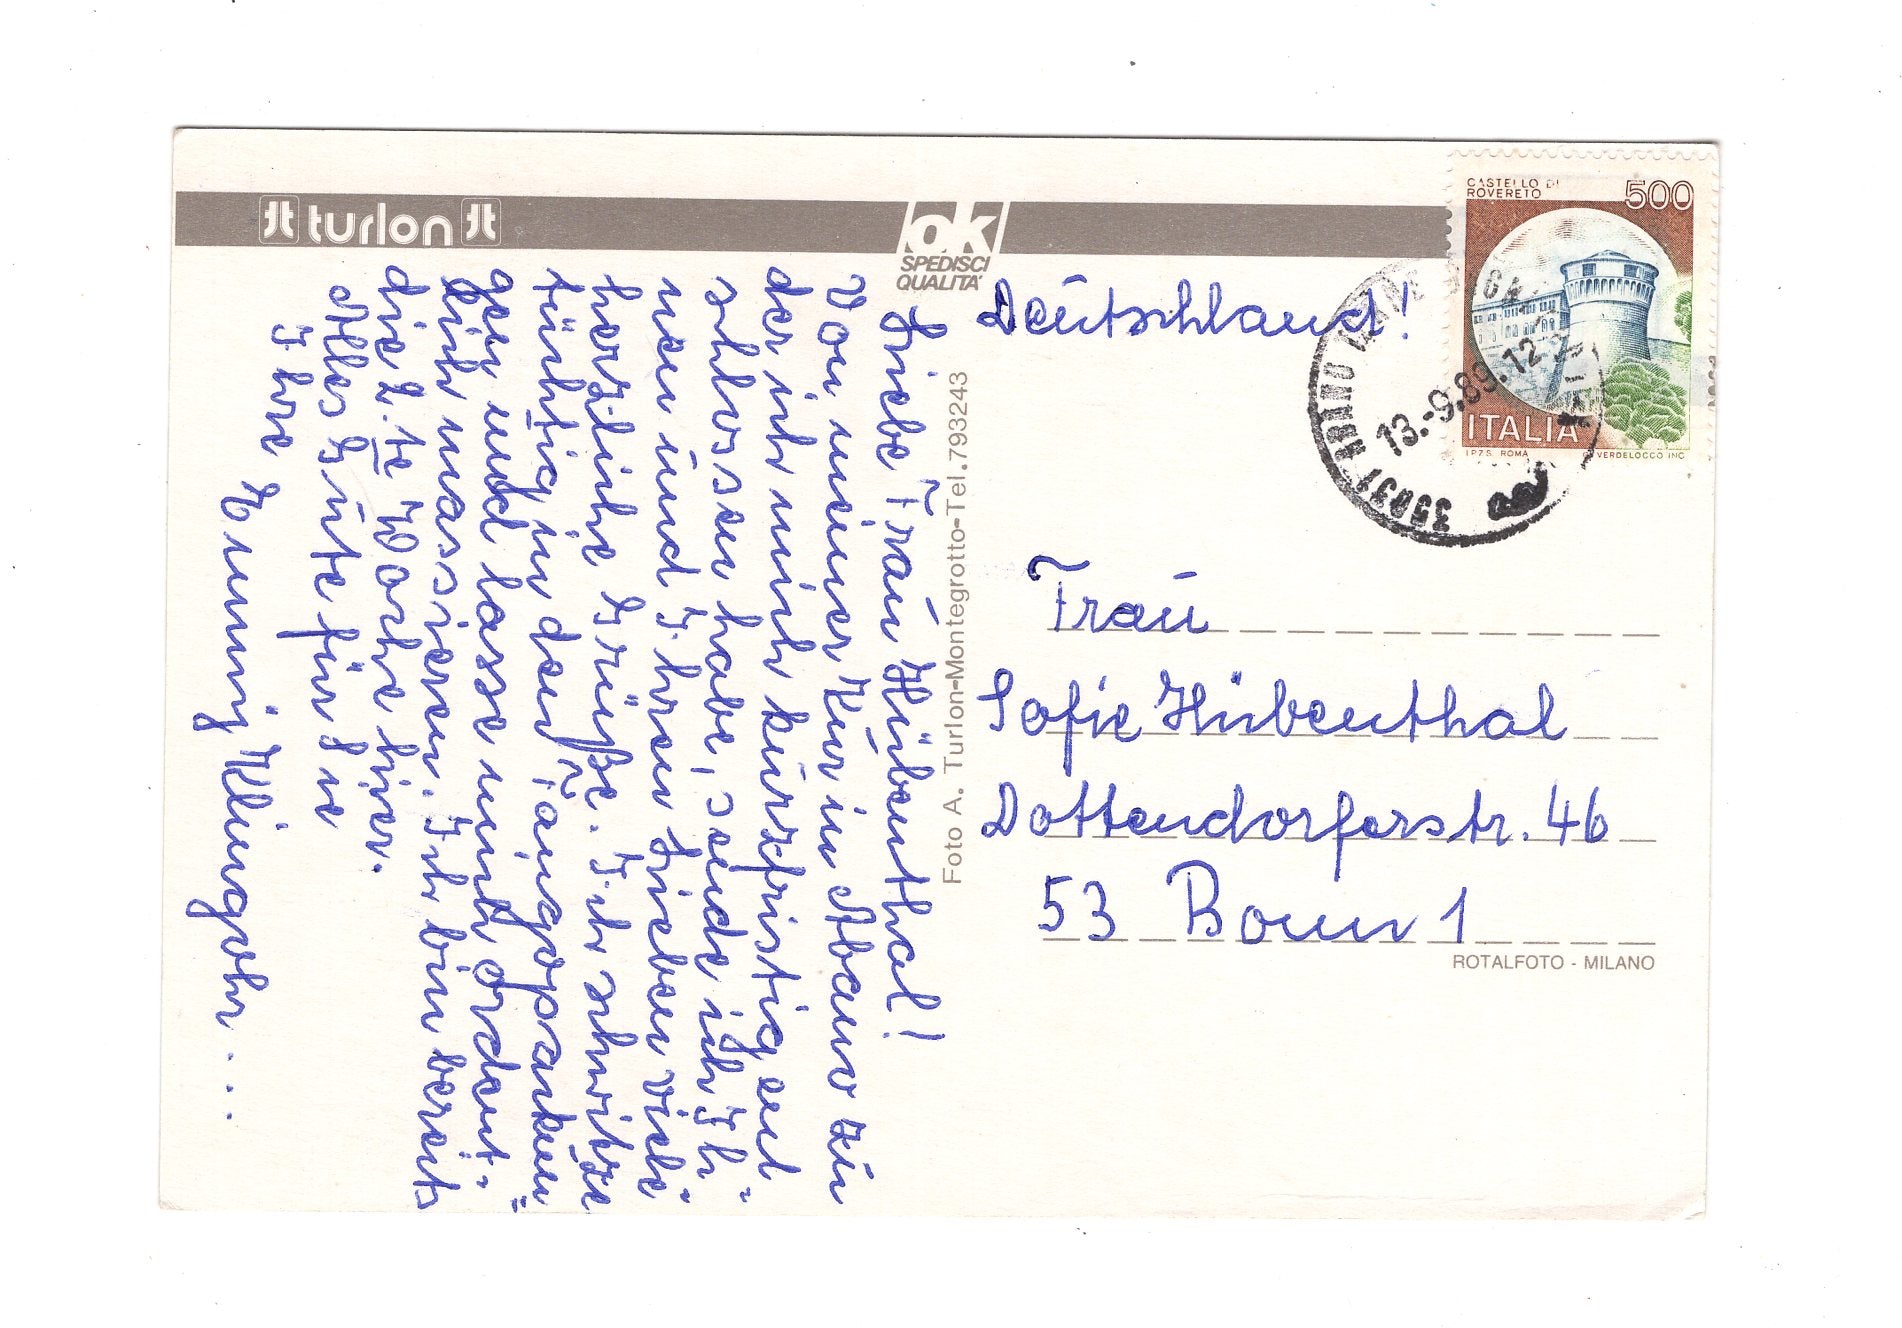 turlon
ok
SPEDISCI
QUALITA'
CASTELLO DI
ROVERETO
500
ITALIA
I.P.Z.S. ROMA
VERDELOCCO INC
35031 ABANO TERME
13.-9.89.12
Deutschland!
Liebe Frau Hübenthal!
Von meiner Kur in Abano zu
der ich mich kurzfristig ent
schlossen habe, sende ich Ih-
nen und Ihren Lieben viele
herzliche Grüße. Ich schwitze
tüchtig in den Fangopackun=
gen und lasse mich ordent-
lich massieren. Ich bin bereits
die 2.te Woche hier.
Alles Gute für Sie
Ihre
Klingohr...
Foto A. Turlon-Montegrotto-Tel.793243
Frau
Sofie Hübenthal
Dottendorferstr. 46
53 Bonn 1
ROTALFOTO - MILANO